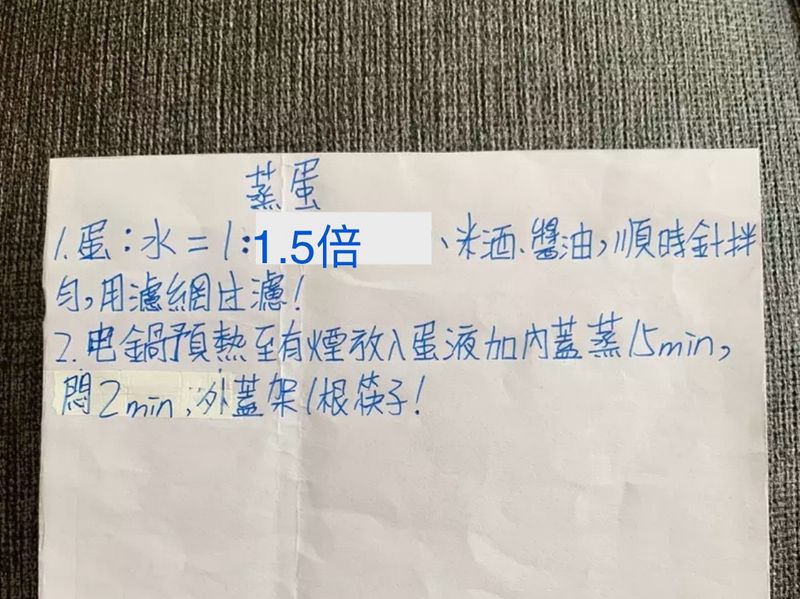 蒸蛋
1.蛋:水=1:1.5倍、米酒、醬油,順時針拌
勻,用濾網过濾!
2.电鍋預熱至有煙放入蛋液加內蓋蒸15min,
悶2min,外蓋架1根筷子!